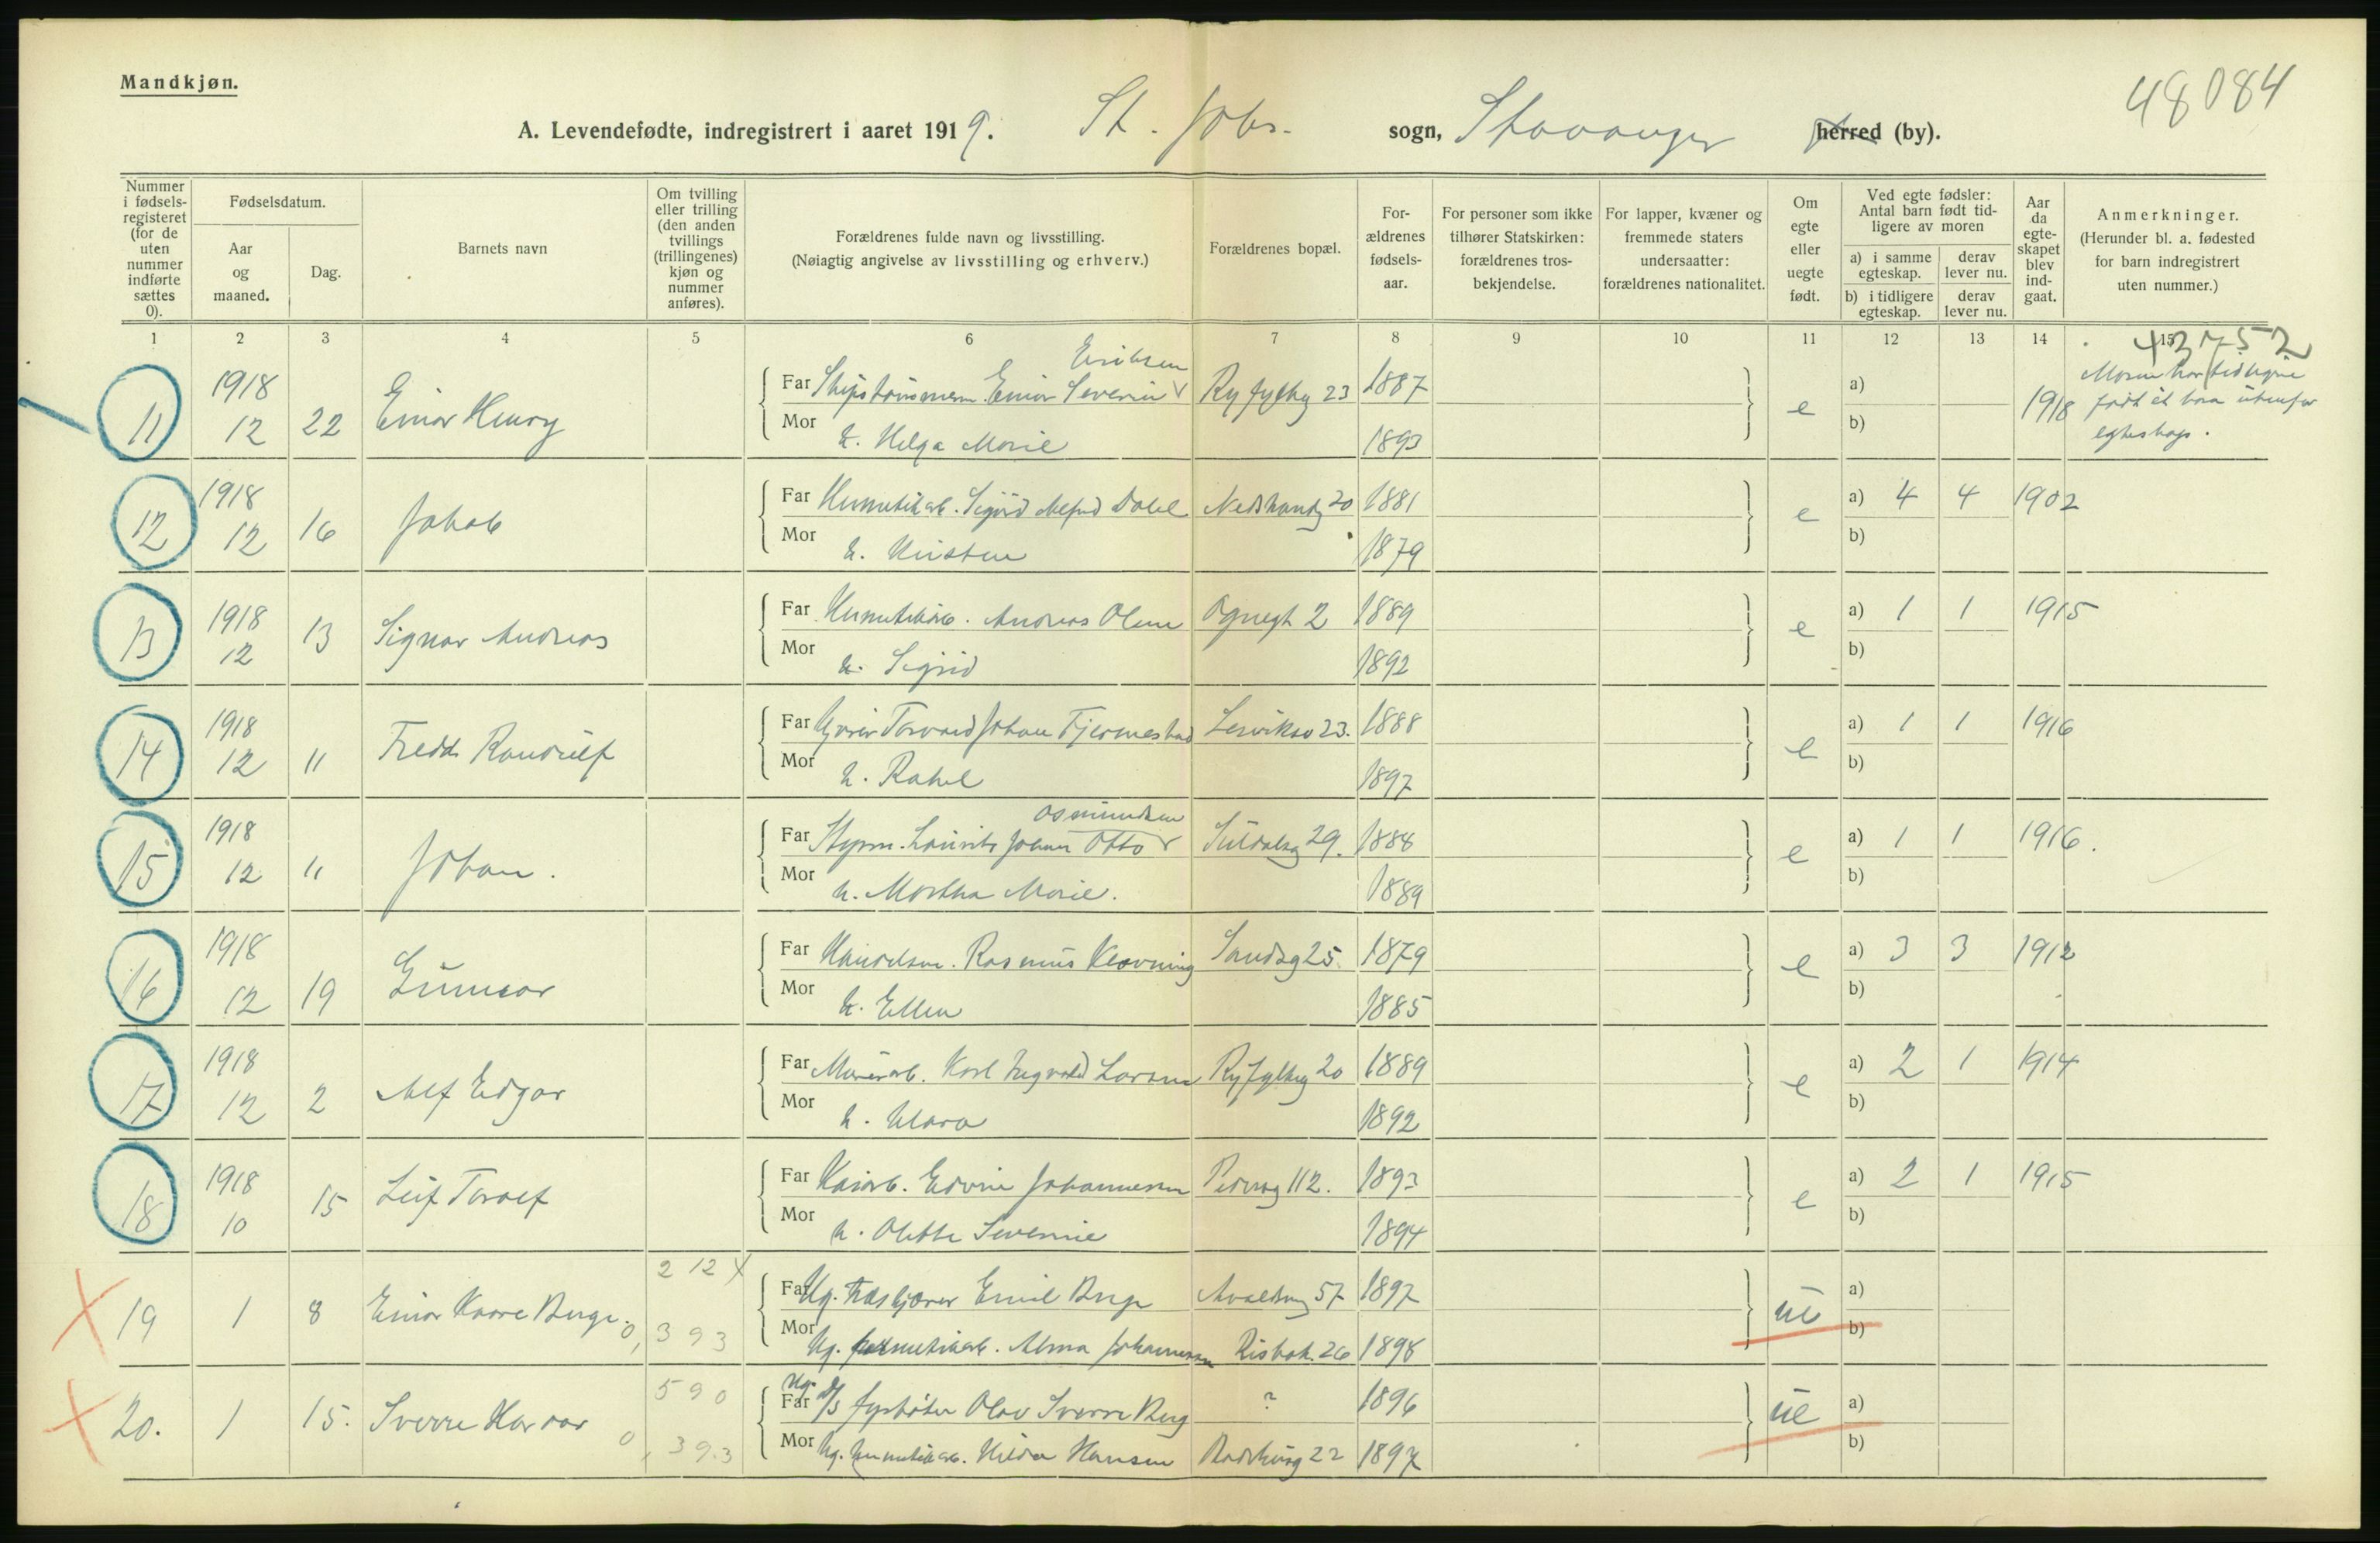 Mandkjøn.
48084
A. Levendefødte, indregistrert i aaret 1919. St. Johs. sogn, Stavanger herred (by).
Nummer i fødsels-registeret (for de uten nummer indførte sættes 0).
Fødselsdatum.
Aar og maaned.
Dag.
Barnets navn
Om tvilling eller trilling (den anden tvillings (trillingenes) kjøn og nummer anføres).
Forældrenes fulde navn og livsstilling.
(Nøiagtig angivelse av livsstilling og erhverv.)
Forældrenes bopæl.
For-ældrenes fødsels-aar.
For personer som ikke tilhører Statskirken: forældrenes tros-bekjendelse.
For lapper, kvæner og fremmede staters undersaatter: forældrenes nationalitet.
Om egte eller uegte født.
Ved egte fødsler: Antal barn født tid-ligere av moren
a) i samme egteskap.
derav lever nu.
b) i tidligere egteskap.
derav lever nu.
Aar da egte-skapet blev ind-gaat.
Anmerkninger.
(Herunder bl. a. fødested for barn indregistrert uten nummer.)
1 2 3 4 5 6 7 8 9 10 11 12 13 14 15
43752
11 1918 12 22 Einar Henry
Eriksen
Far Skipstømmerm. Einar Severin Ryfylkg 23 1887
Mor h. Helga Marie 1893
e a) b) 1918
Moren har tidligere
født et barn utenfor
egteskap.
12 1918 12 16 Jakob
Far Hermetikarb. Sigurd Alfred Dahl Nedstrandg 20 1881
Mor h. Kristine 1879
e a) 4 4 1902
b)
13 1918 12 13 Signar Andreas
Far Hermetikarb. Andreas Olsen Ognegt 2 1889
Mor h. Sigrid 1892
e a) 1 1 1915
b)
14 1918 12 11 Fredd Randulf
Far Torvald Johan Tjermestad 23. 1888
Mor h. Rakel 1897
e a) 1 1 1916
b)
15 1918 12 11 Johan.
Osmundsen
Far Styrm. Laurits Johan Otto Suldalsg 29. 1888
Mor h. Martha Marie. 1889
e a) 1 1 1916.
b)
16 1918 12 19 Gunnar
Far Handelsm. Rasmus Klovning Sandsg 25. 1879
Mor h. Ellen 1885
e a) 3 3 1912
b)
17 1918 12 2 Alf Edgar
Far Murerarb. Karl Ingvald Larsen Ryfylkg 20 1889
Mor h. Klara 1892
e a) 2 1 1914
b)
18 1918 10 15 Leif Toralf
Far Kaiarb. Edvin Johannesen Pedersg 112. 1893
Mor h. Olette Severine 1894
e a) 2 1 1915
b)
212 X
19 1 8 Einar Kaare Berge. 0,393
Far Ug. Emil Berge Avaldsng 57 1897
Mor Ug. hermetikarb. Alma Johannesen Risbak. 26 1898
ue a) b)
590
20. 1 15. Sverre Harvar 0,393
Far Ug. D/S fyrbøter Olav Sverre Berg ? 1896
Mor Ug. hermetikarb. Hilda Hansen Rødhusg 22 1897
ue a) b)